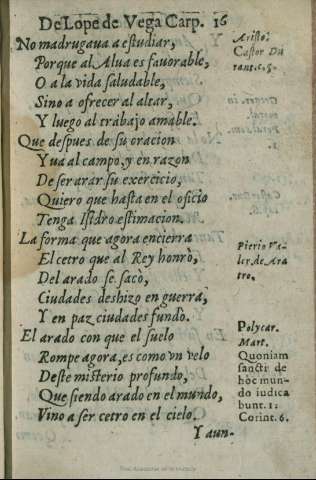 De Lope de Vega Carp. 16
No madrugaua a estudiar,
Porque al Alua es fauorable,
O a la vida saludable,
Sino a ofrecer al altar,
Y luego al trabajo amable.
Que despues de su oracion
Yua al campo, y en razon
De ser arar su exercicio,
Quiero que hasta en el oficio
Tenga Isidro estimacion.
La forma que agora encierra
El cetro que al Rey honrò,
Del arado se sacò,
Ciudades deshizo en guerra,
Y en paz ciudades fundò.
El arado con que el suelo
Rompe agora, es como vn velo
Deste misterio profundo,
Que siendo arado en el mundo,
Vino a ser cetro en el cielo.
Y aun-
Aristo.
Castor Du
rant. c. 5.
Pierio Va-
ler. de Ara
tro.
Polycar.
Mart.
Quoniam
sancti de
hoc mun-
do iudica
bunt. 1.
Corint. 6.